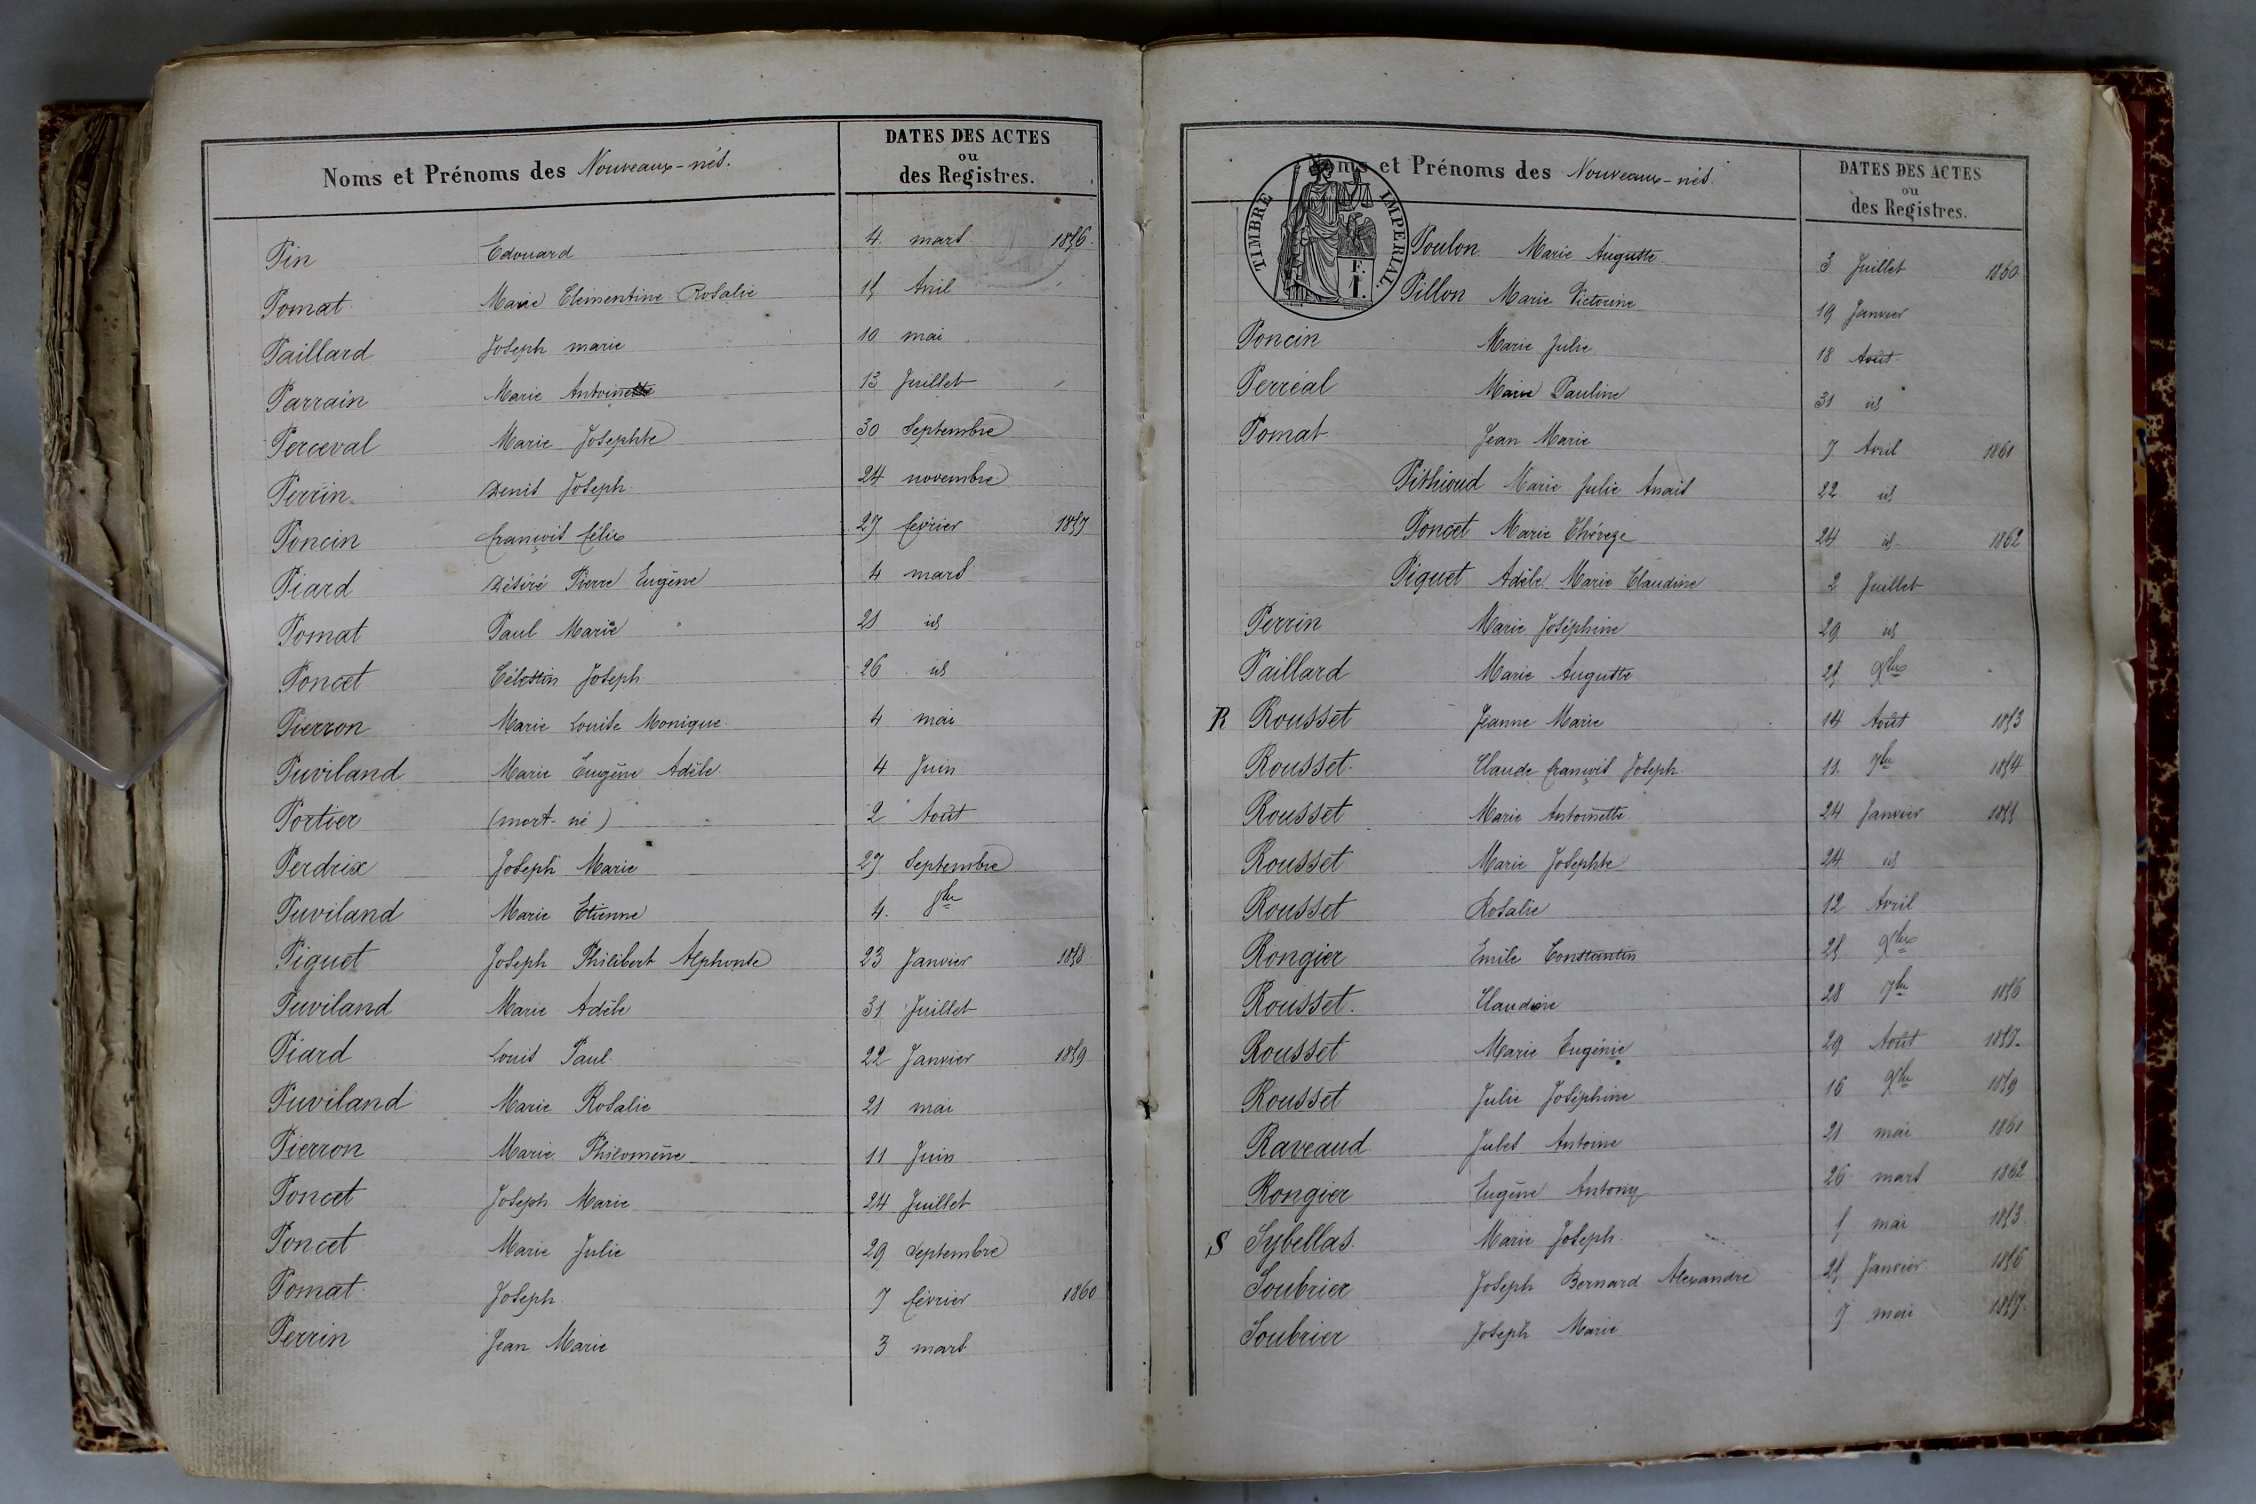 Noms et Prénoms des Nouveaux-nés.
DATES DES ACTES
ou
des Registres.
Pin Edouard 4 mars 1856.
Pomat Marie Clémentine Rosalie 15 Avril
Paillard Joseph marie 10 mai
Parrain Marie Antoinette 13 Juillet
Perceval Marie Josephte 30 Septembre
Perrin Denis Joseph 24 novembre
Poncin françois félix 27 février 1857
Piard Désiré Pierre Eugène 4 mars
Pomat Paul Marie 21 id
Poncet Célestin Joseph 26 id
Pierron Marie Louise Monique 4 mai
Puviland Marie Eugène Adèle 4 Juin
Portier (mort-né) 2 Août
Perdrix Joseph Marie 27 Septembre
Puviland Marie Etienne 4. 8bre
Piguet Joseph Philibert Alphonse 23 Janvier 1858
Puviland Marie Adèle 31 Juillet
Piard Louis Paul 22 Janvier 1859
Puviland Marie Rosalie 21 mai
Pierron Marie Philomène 11 Juin
Poncet Joseph Marie 24 Juillet
Poncet Marie Julie 29 Septembre
Pomat Joseph 7 février 1860
Perrin Jean Marie 3 mars
Noms et Prénoms des Nouveaux-nés.
DATES DES ACTES
ou
des Registres.
TIMBRE IMPERIAL.
F.
1.
Poulon Marie Auguste 3 Juillet 1860
Pillon Marie Victorine 19 Janvier
Poncin Marie Julie 18 Août
Perréal Marie Pauline 31 id
Pomat Jean Marie 7 Avril 1861
Pithioud Marie Julie Anais 22 id
Poncet Marie Thérèze 24 id 1862
Piguet Adèle Marie Claudine 2 Juillet
Perrin Marie Joséphine 29 id
Paillard Marie Auguste 25 9bre
R Rousset Jeanne Marie 14 Août 1853
Rousset Claude françois Joseph 11 7bre 1854
Rousset Marie Antoinette 24 Janvier 1855
Rousset Marie Josephte 24 id
Rousset Rosalie 12 Avril
Rongier Emile Constantin 25 9bre
Rousset. Claudine 28 7bre 1856
Rousset Marie Eugénie 29 Août 1857.
Rousset Julie Joséphine 16 9bre 1859
Raveaud Jules Antoine 21 mai 1861
Rongier Eugène Antony 26 mars 1862
S Sybellas. Marie Joseph 5 mai 1853
Soubrier Joseph Bernard Alexandre 25 Janvier 1856
Soubrier Joseph Marie 7 mai 1857.